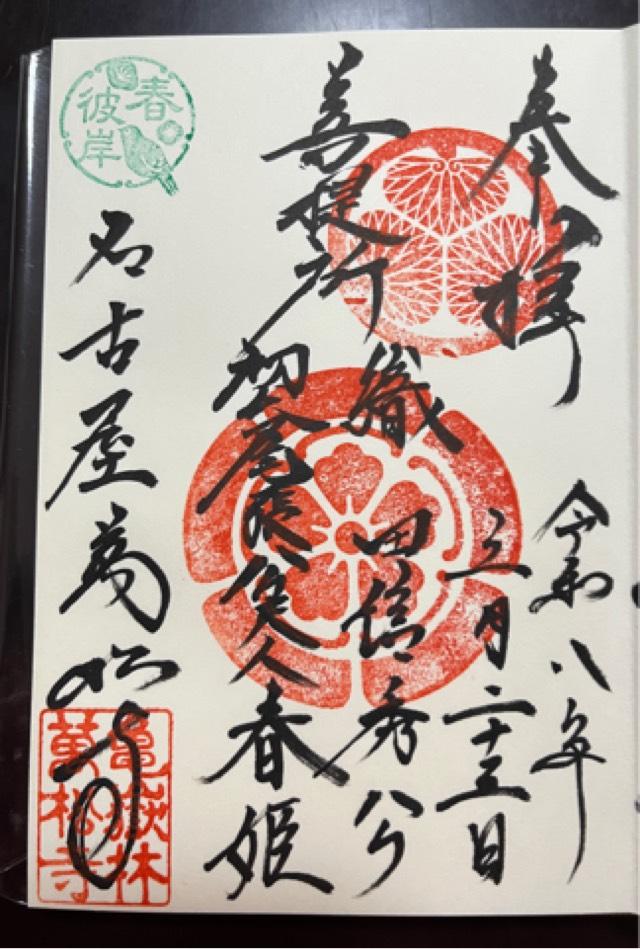 奉拝
令和八年
三月二十三日
菩提所
織田信秀公
初代尾張藩主夫人春姫
名古屋萬松寺
春彼岸
亀嶽林
萬松寺